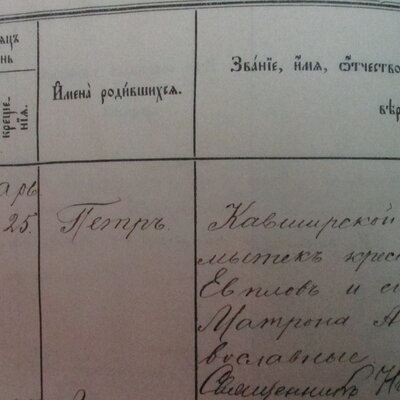 яцъ
нь
креще-
нїя.
Имена̀ роди́вшихся.
Зва́нїе, и́мя, ѻ́тчество
вѣр
арь
25.
Петръ
Кавширской
крес
Евпловъ и
Матрона А
вославные
Священникъ